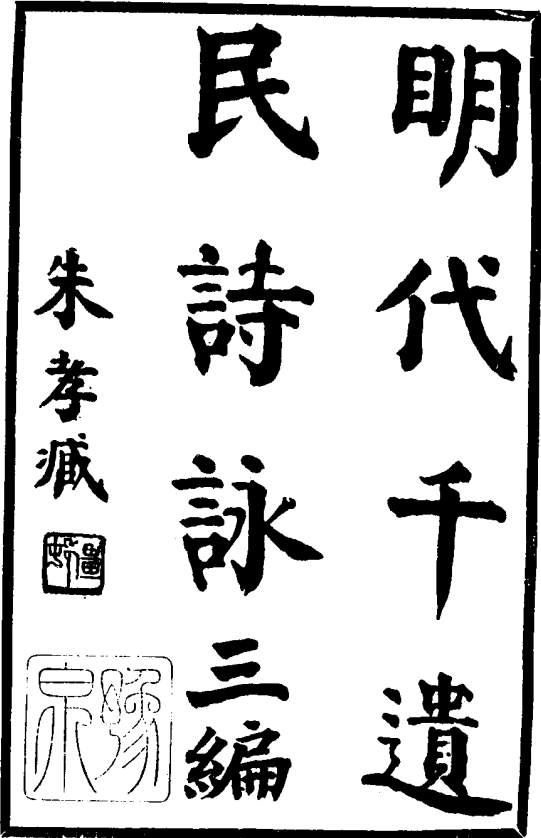 明代千遺
民詩詠三編
朱孝臧